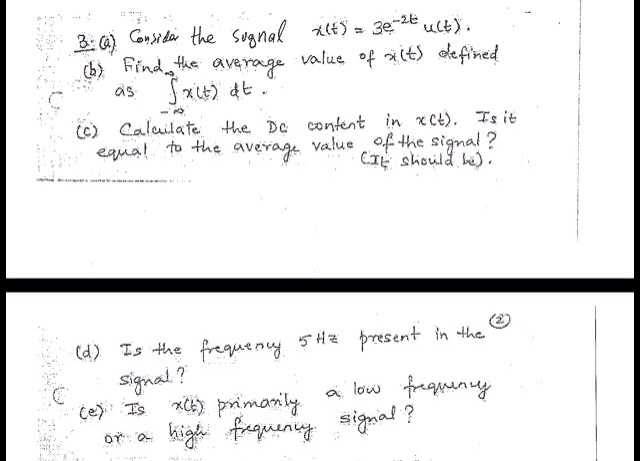 3. (a) Consider the signal x(t) = 3e^{-2t} u(t).
(b) Find the average value of x(t) defined
as ∫_{-∞}^{∞} x(t) dt.
(c) Calculate the DC content in x(t). Is it
equal to the average value of the signal?
(It should be).
②
(d) Is the frequency 5 Hz present in the
signal?
(e) Is x(t) primarily a low frequency
or a high frequency signal?